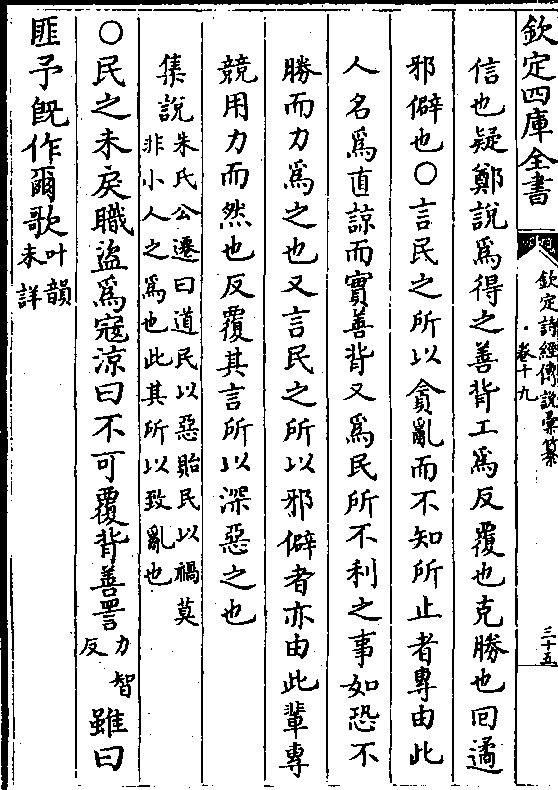 欽定四庫全書
欽定詩經傳說彙纂
卷十九
三十五
信也疑鄭說爲得之善背工爲反覆也克勝也回遹
邪僻也○言民之所以貪亂而不知所止者專由此
人名爲直諒而實善背又爲民所不利之事如恐不
勝而力爲之也又言民之所以邪僻者亦由此輩專
競用力而然也反覆其言所以深惡之也
集說朱氏公遷曰道民以惡貽民以禍莫
非小人之爲也此其所以致亂也
○民之未戾職盜爲寇涼曰不可覆背善詈力智反雖曰
匪予旣作爾歌叶韻未詳